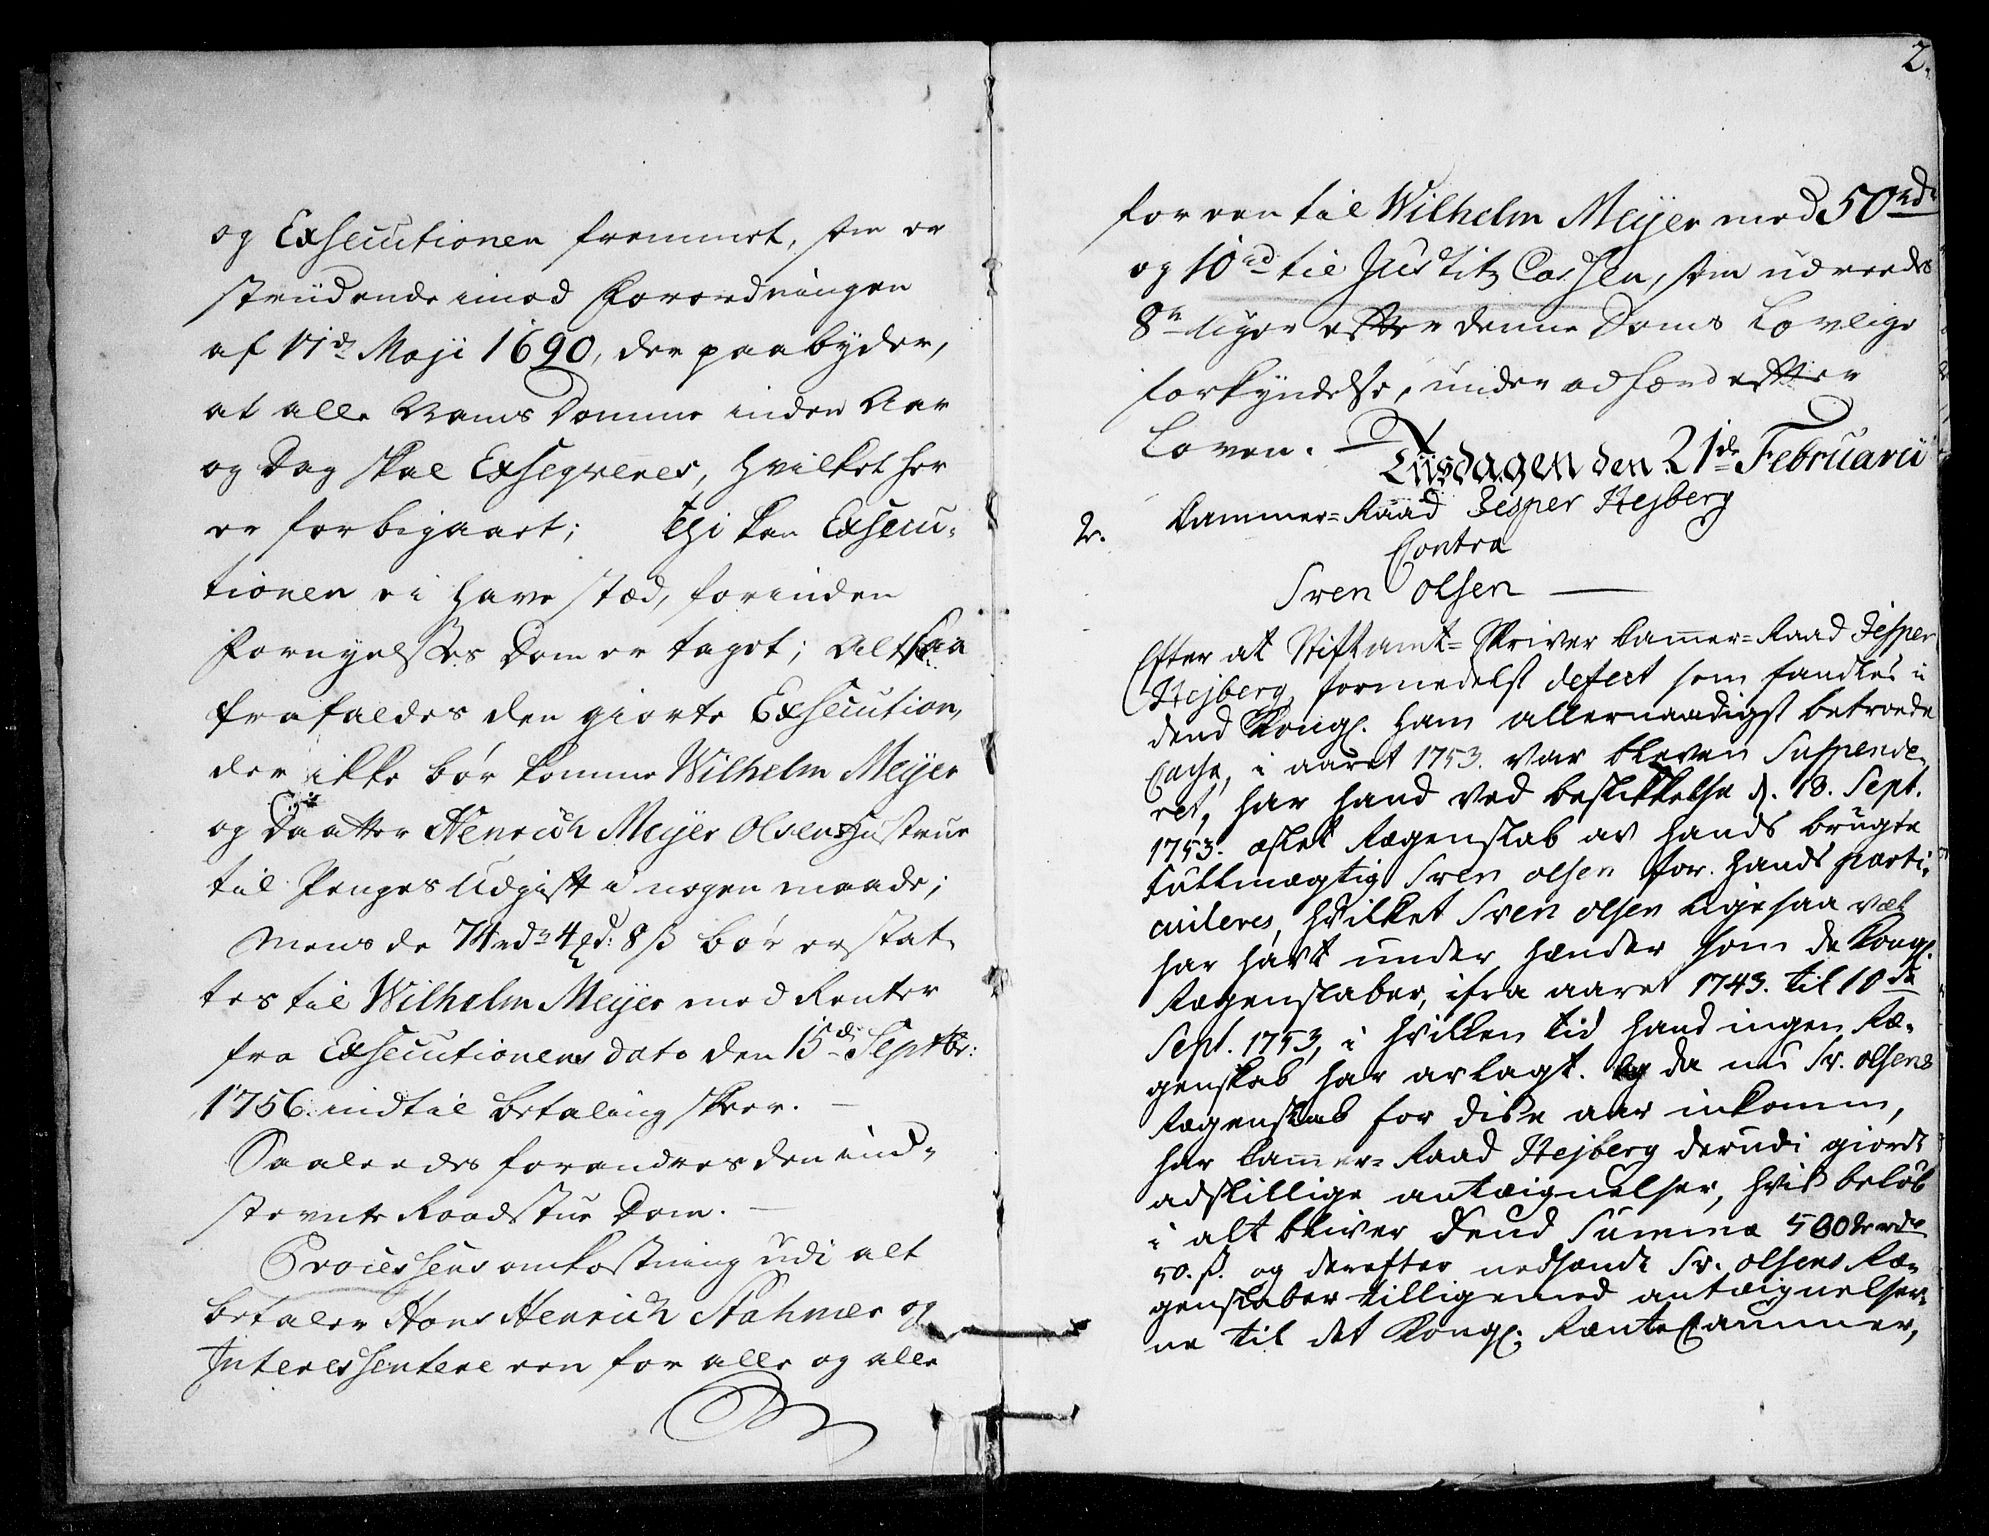 og Exsecutionen fremmet, som er
striidende imod Forordningen
af 17de Maji 1690, der paabyder,
at alle Vams Domme inden Aar
og Dag skal Exseqveres, hvilket her
er forbigaaet; Thi kan Exsecu-
tionen ei have stæd, forinden
Fornyelses Dom er taget; Altsaa
frafaldes den giorte Exsecution,
der ikke bør komme Wilhelm Meyer
og Daatter Henrich Meyer Olsens Hustrue
til Penges Udgift i nogen maade;
Mens de 74 rd 4 8 ß bør erstat-
tes til Wilhelm Meyer med Renter
fra Exsecutionens dato den 15de Septbr:
1756. indtil betaling skeer. —
Saaleedes forandres den ind-
stevnte Raadstue Dom. —
Processens omkostning udi alt
betaler Hans Henrich Stahmer og
Interessentere een for alle og alle
2.
for een til Wilhelm Meyer med 50 rdr
og 10 rd til Justitz Cassen, som udreedes
8te uger efter denne Doms Lovlige
forkyndelse, under adfærd efter
Loven. —
Tiisdagen den 21de Februarii
2. Cammer=Raad Jesper Hejberg
Contra
Sven Olsen —
Efter at Stiftamt=Skriver Cammer=Raad Jesper
Hejberg, formedelst defect som fandtes i
dend Kongl. ham allernaadigst betroede
Cassa, i aaret 1753. var bleven Suspende-
ret, har hand ved beskikkelse d. 18. Sept.
1753. æsket Regenskab av hands brugte
fultmægtig Sven olsen for hands parti-
culeres, hvilket Sven olsen ligesaa vel
har havt under hænder som de Kongl.
Regenskaber, ifra aaret 1743. til 10de
Sept. 1753, i hvilken tid hand ingen Re-
genskab har avlagt. Og da nu Sv. olsens
Regenskab for disse aar inkomm,
har Cammer=Raad Hejberg derudi giordt
adskillige antæignelser, hvis beløb
i alt bliver Dend Summa rdr
50. ß. og derefter nedsendt Sv. olsens Re-
genskaber tilligemed antæignelser-
ne til det Kongl. RenteCammer,